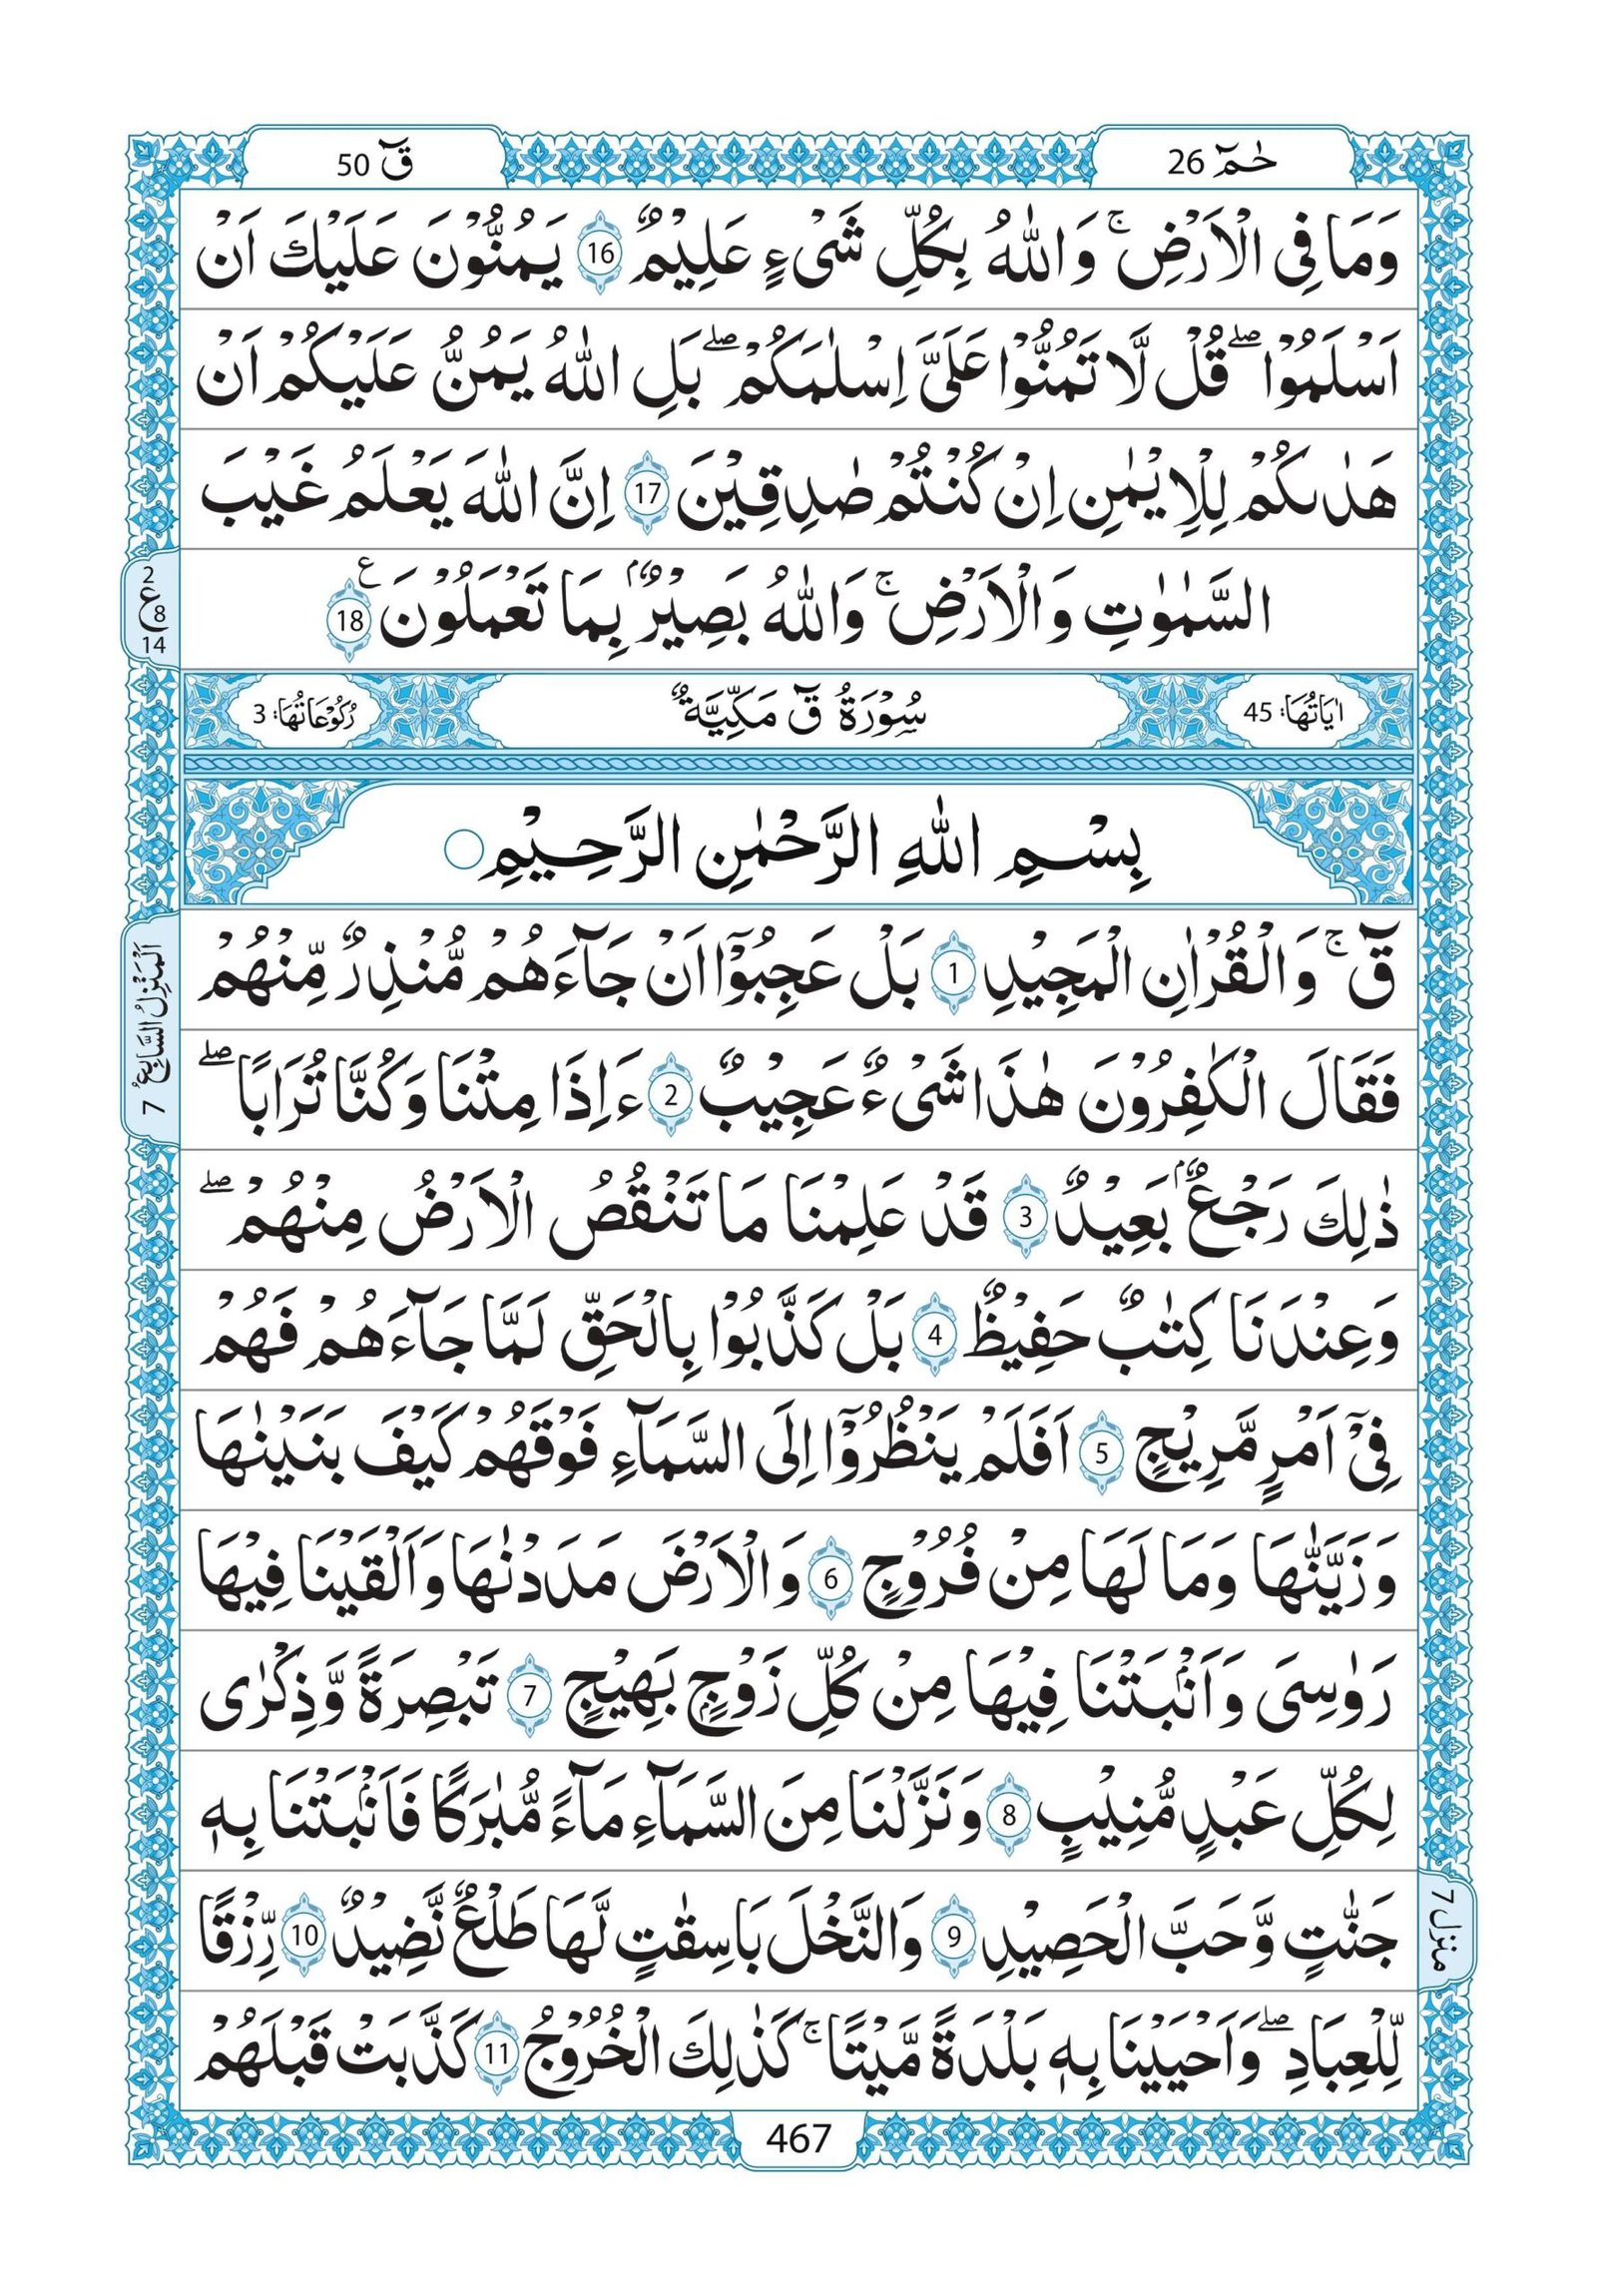 حٰمٓ 26
قٓ 50
وَمَا فِی الْاَرْضِ ۚ وَاللّٰهُ بِكُلِّ شَیْءٍ عَلِیْمٌ 16 یَمُنُّوْنَ عَلَیْكَ اَنْ
اَسْلَمُوْا ۖ قُلْ لَّا تَمُنُّوْا عَلَیَّ اِسْلٰمَكُمْ ۖ بَلِ اللّٰهُ یَمُنُّ عَلَیْكُمْ اَنْ
هَدٰىكُمْ لِلْاِیْمٰنِ اِنْ كُنْتُمْ صٰدِقِیْنَ 17 اِنَّ اللّٰهَ یَعْلَمُ غَیْبَ
السَّمٰوٰتِ وَالْاَرْضِ ۚ وَاللّٰهُ بَصِیْرٌۢ بِمَا تَعْمَلُوْنَ 18 ع
2
ع 8
14
اٰیَاتُهَا: 45
سُوْرَةُ قٓ مَكِّیَّةٌ
رُكُوْعَاتُهَا: 3
بِسْمِ اللّٰهِ الرَّحْمٰنِ الرَّحِیْمِ
قٓ ۚ وَالْقُرْاٰنِ الْمَجِیْدِ 1 بَلْ عَجِبُوْۤا اَنْ جَآءَهُمْ مُّنْذِرٌ مِّنْهُمْ
فَقَالَ الْكٰفِرُوْنَ هٰذَا شَیْءٌ عَجِیْبٌ 2 ءَاِذَا مِتْنَا وَكُنَّا تُرَابًا ۖ
ذٰلِكَ رَجْعٌۢ بَعِیْدٌ 3 قَدْ عَلِمْنَا مَا تَنْقُصُ الْاَرْضُ مِنْهُمْ ۖ
وَعِنْدَنَا كِتٰبٌ حَفِیْظٌ 4 بَلْ كَذَّبُوْا بِالْحَقِّ لَمَّا جَآءَهُمْ فَهُمْ
فِیْۤ اَمْرٍ مَّرِیْجٍ 5 اَفَلَمْ یَنْظُرُوْۤا اِلَی السَّمَآءِ فَوْقَهُمْ كَیْفَ بَنَیْنٰهَا
وَزَیَّنّٰهَا وَمَا لَهَا مِنْ فُرُوْجٍ 6 وَالْاَرْضَ مَدَدْنٰهَا وَاَلْقَیْنَا فِیْهَا
رَوٰسِیَ وَاَنْۢبَتْنَا فِیْهَا مِنْ كُلِّ زَوْجٍۭ بَهِیْجٍ 7 تَبْصِرَةً وَّذِكْرٰی
لِكُلِّ عَبْدٍ مُّنِیْبٍ 8 وَنَزَّلْنَا مِنَ السَّمَآءِ مَآءً مُّبٰرَكًا فَاَنْۢبَتْنَا بِهٖ
جَنّٰتٍ وَّحَبَّ الْحَصِیْدِ 9 وَالنَّخْلَ بَاسِقٰتٍ لَّهَا طَلْعٌ نَّضِیْدٌ 10 رِّزْقًا
لِّلْعِبَادِ ۖ وَاَحْیَیْنَا بِهٖ بَلْدَةً مَّیْتًا ۚ كَذٰلِكَ الْخُرُوْجُ 11 كَذَّبَتْ قَبْلَهُمْ
اَلْمَنْزِلُ السَّابِعُ 7
منزل 7
467